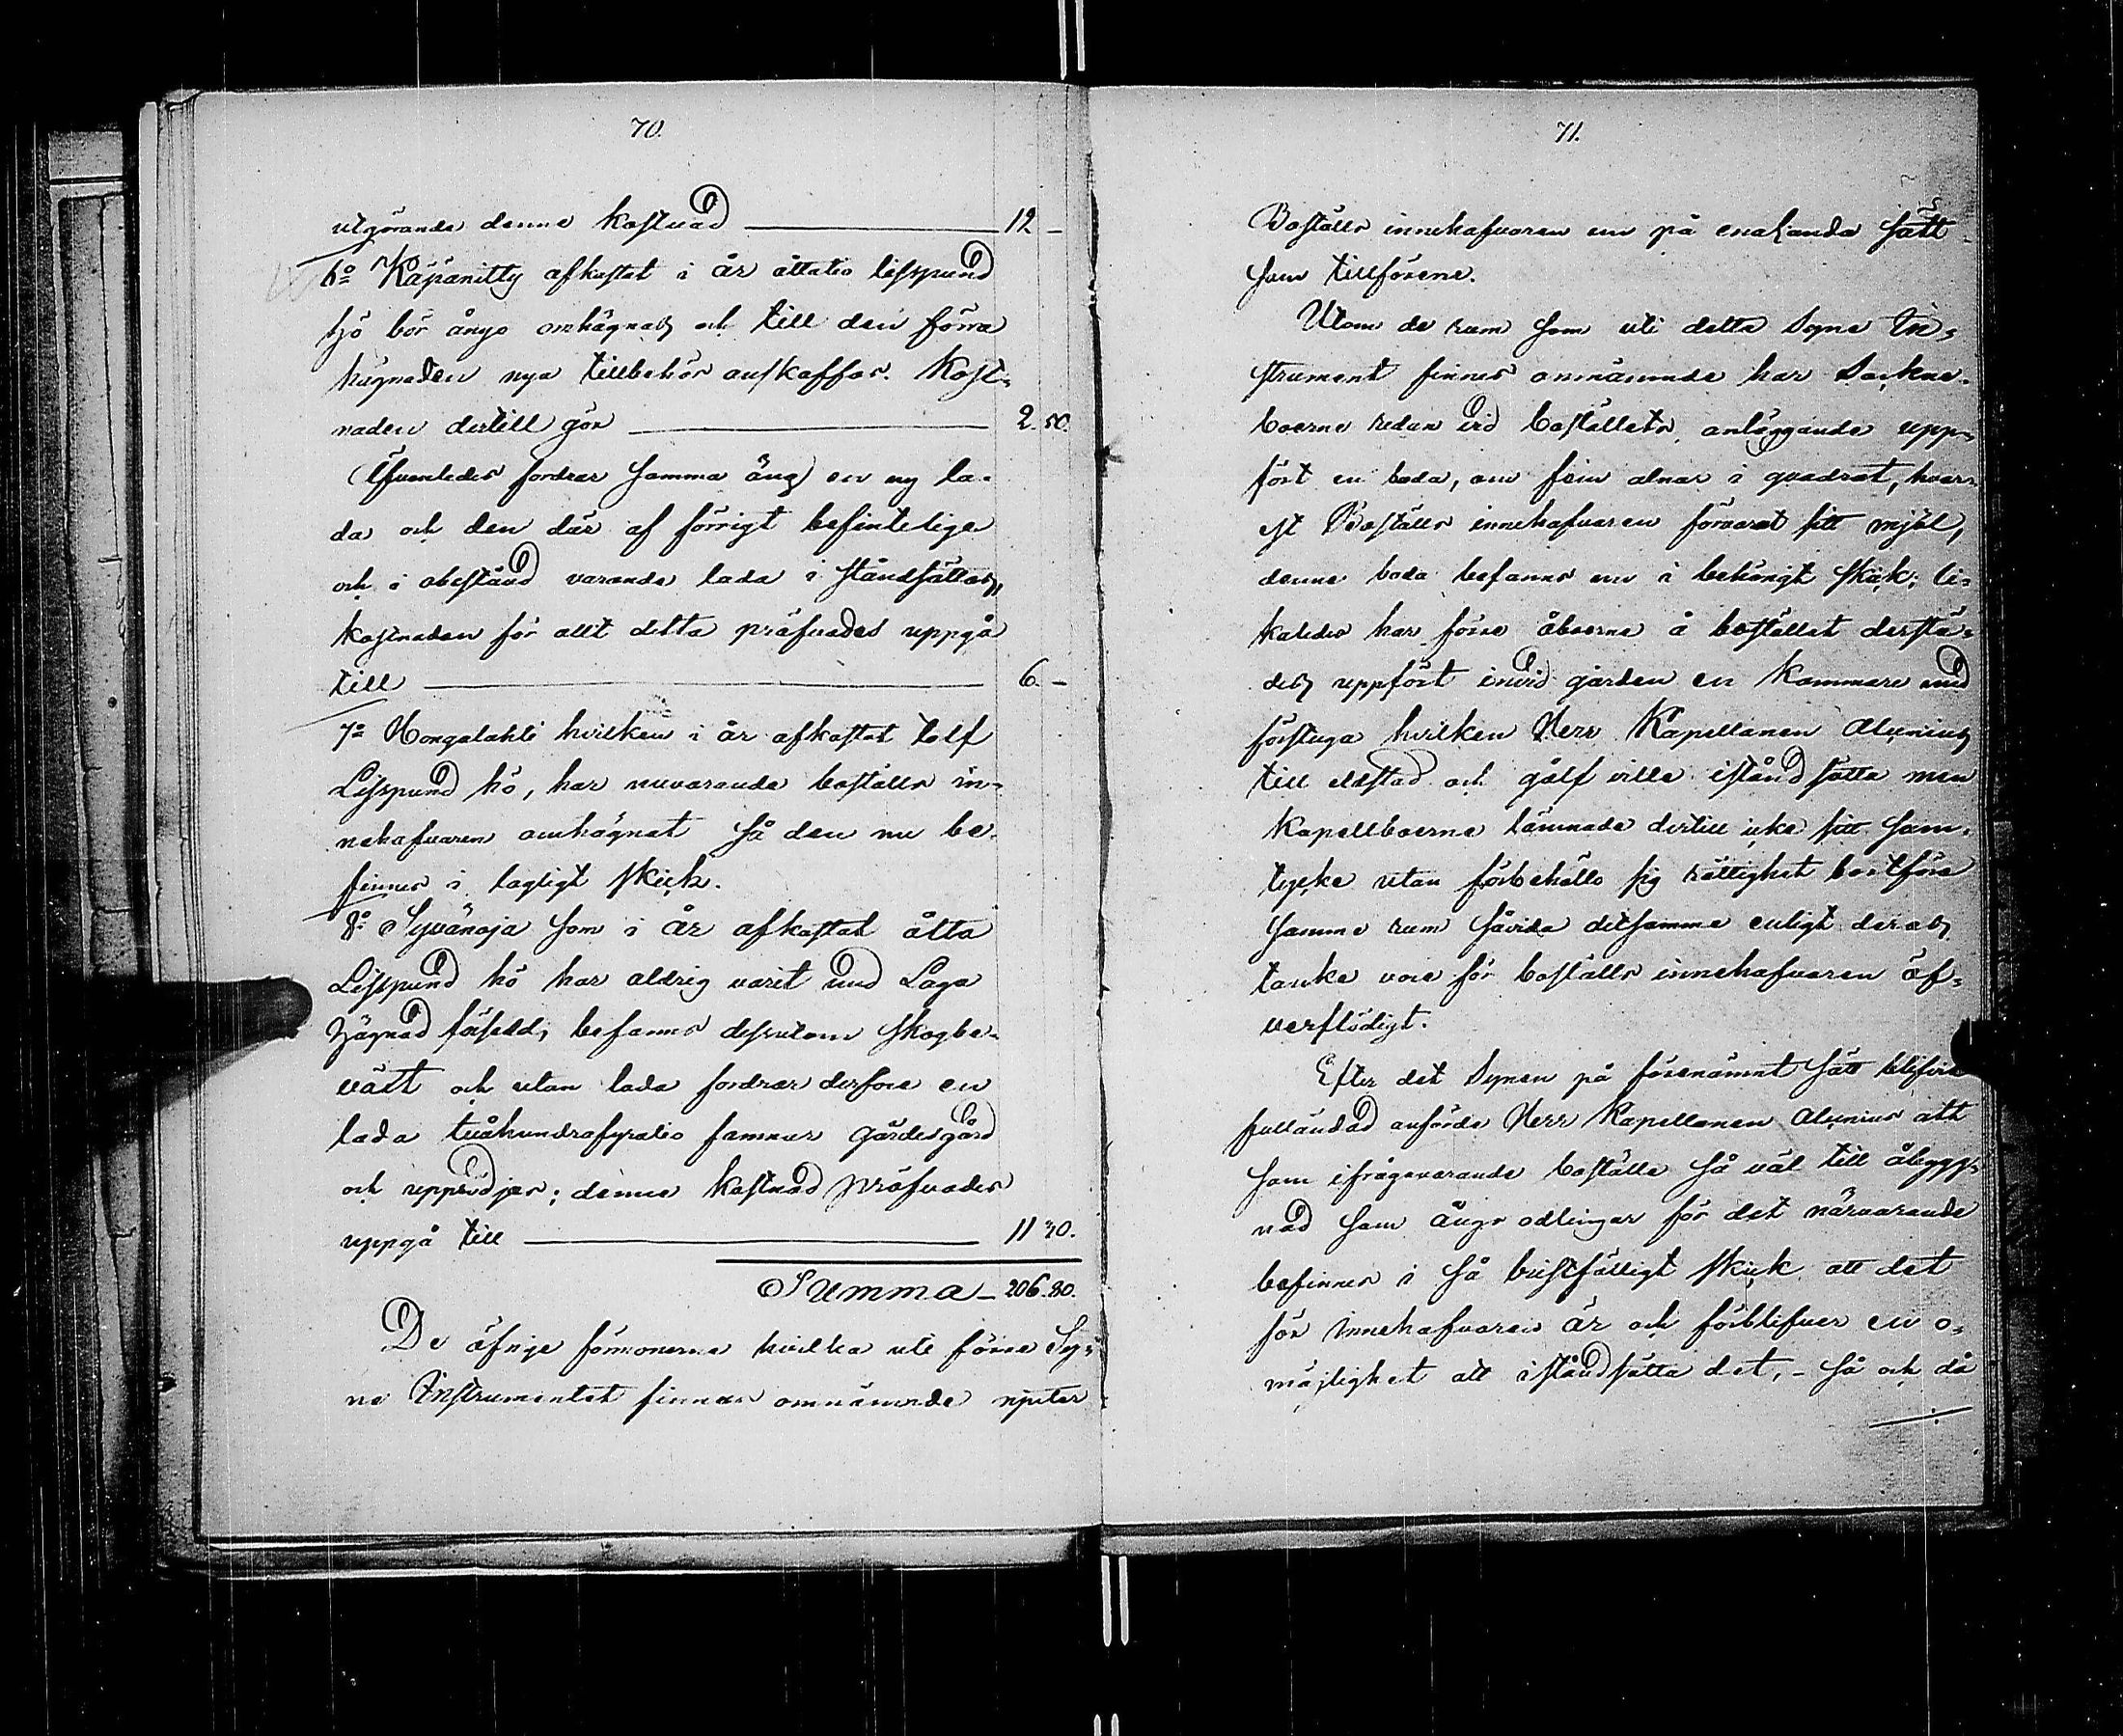 70.
utgörande denna kostnad — 12 —
6o Käpänitty afkastat i år åttatio lispund
hö bör ånyo omhägnas och till den förra
hägnaden nya tillbehör anskaffas. Kost-
naden dertill gör — 2. 50.
Äfvenledes fordrar samma äng en ny la-
da och den där af förrigt befintelige
och i obestånd varande lada i ståndsättas,
kostnaden för allt detta pröfvades uppgå
till — 6. —
7o Hongalahti hvilken i år afkastat tolf
Lispund hö, har nuvarande boställs in-
nehafvaren omhägnat så den nu be-
finnes i lagligt skick.
8o Syvänoja som i år afkastat åtta
Lispund hö har aldrig varit med Laga
hägnad försedd, befanns dessutom skogbe-
växt och utan lada fordrar derföre en
lada tvåhundrafyratio famnar gärdesgård
och uppröjas; denna kostnad pröfvades
uppgå till — 11 30.
Summa — 206. 80.
De öfrige förmonerna hvilka uti förra Sy-
ne Instrumentet finnas omnämnde njuter
71.
Boställs innehafvaren nu på enahanda sätt
som tillförene.
Utom de rum som uti detta Syne In-
strument finnes omnämnde har Sockne-
boerne redan vid boställets anläggande upp-
fört en boda, om fem alnar i quadrat, hvar-
est Boställs innehafvaren förvarat sitt mjöl,
denna boda befanns nu i behörigt skick; li-
kaledes har förre åboerne å bostället derstä-
des uppfört invid gården en Kammare med
förstuga hvilken Herr Kapellanen Alcenius
till eldstad och gålf ville iståndsätta men
Kapellboerne lämnade dertill icke sitt sam-
tycke utan förbehöllo sig rättighet bortföra
samma rum såvida detsamma enligt deras
tanke vore för boställs innehafvaren öf-
verflödigt.
Efter det Synen på förenämnt sätt blifvit
fulländad anförde Herr Kapellanen Alcenius att
som ifrågavarande boställe så väl till åbygg-
nad som ängs odlingar för det närvarande
befinnes i så bristfälligt skick att det
för Innehafvaren är och förblifver en o-
möjlighet att iståndsätta det, - så och då